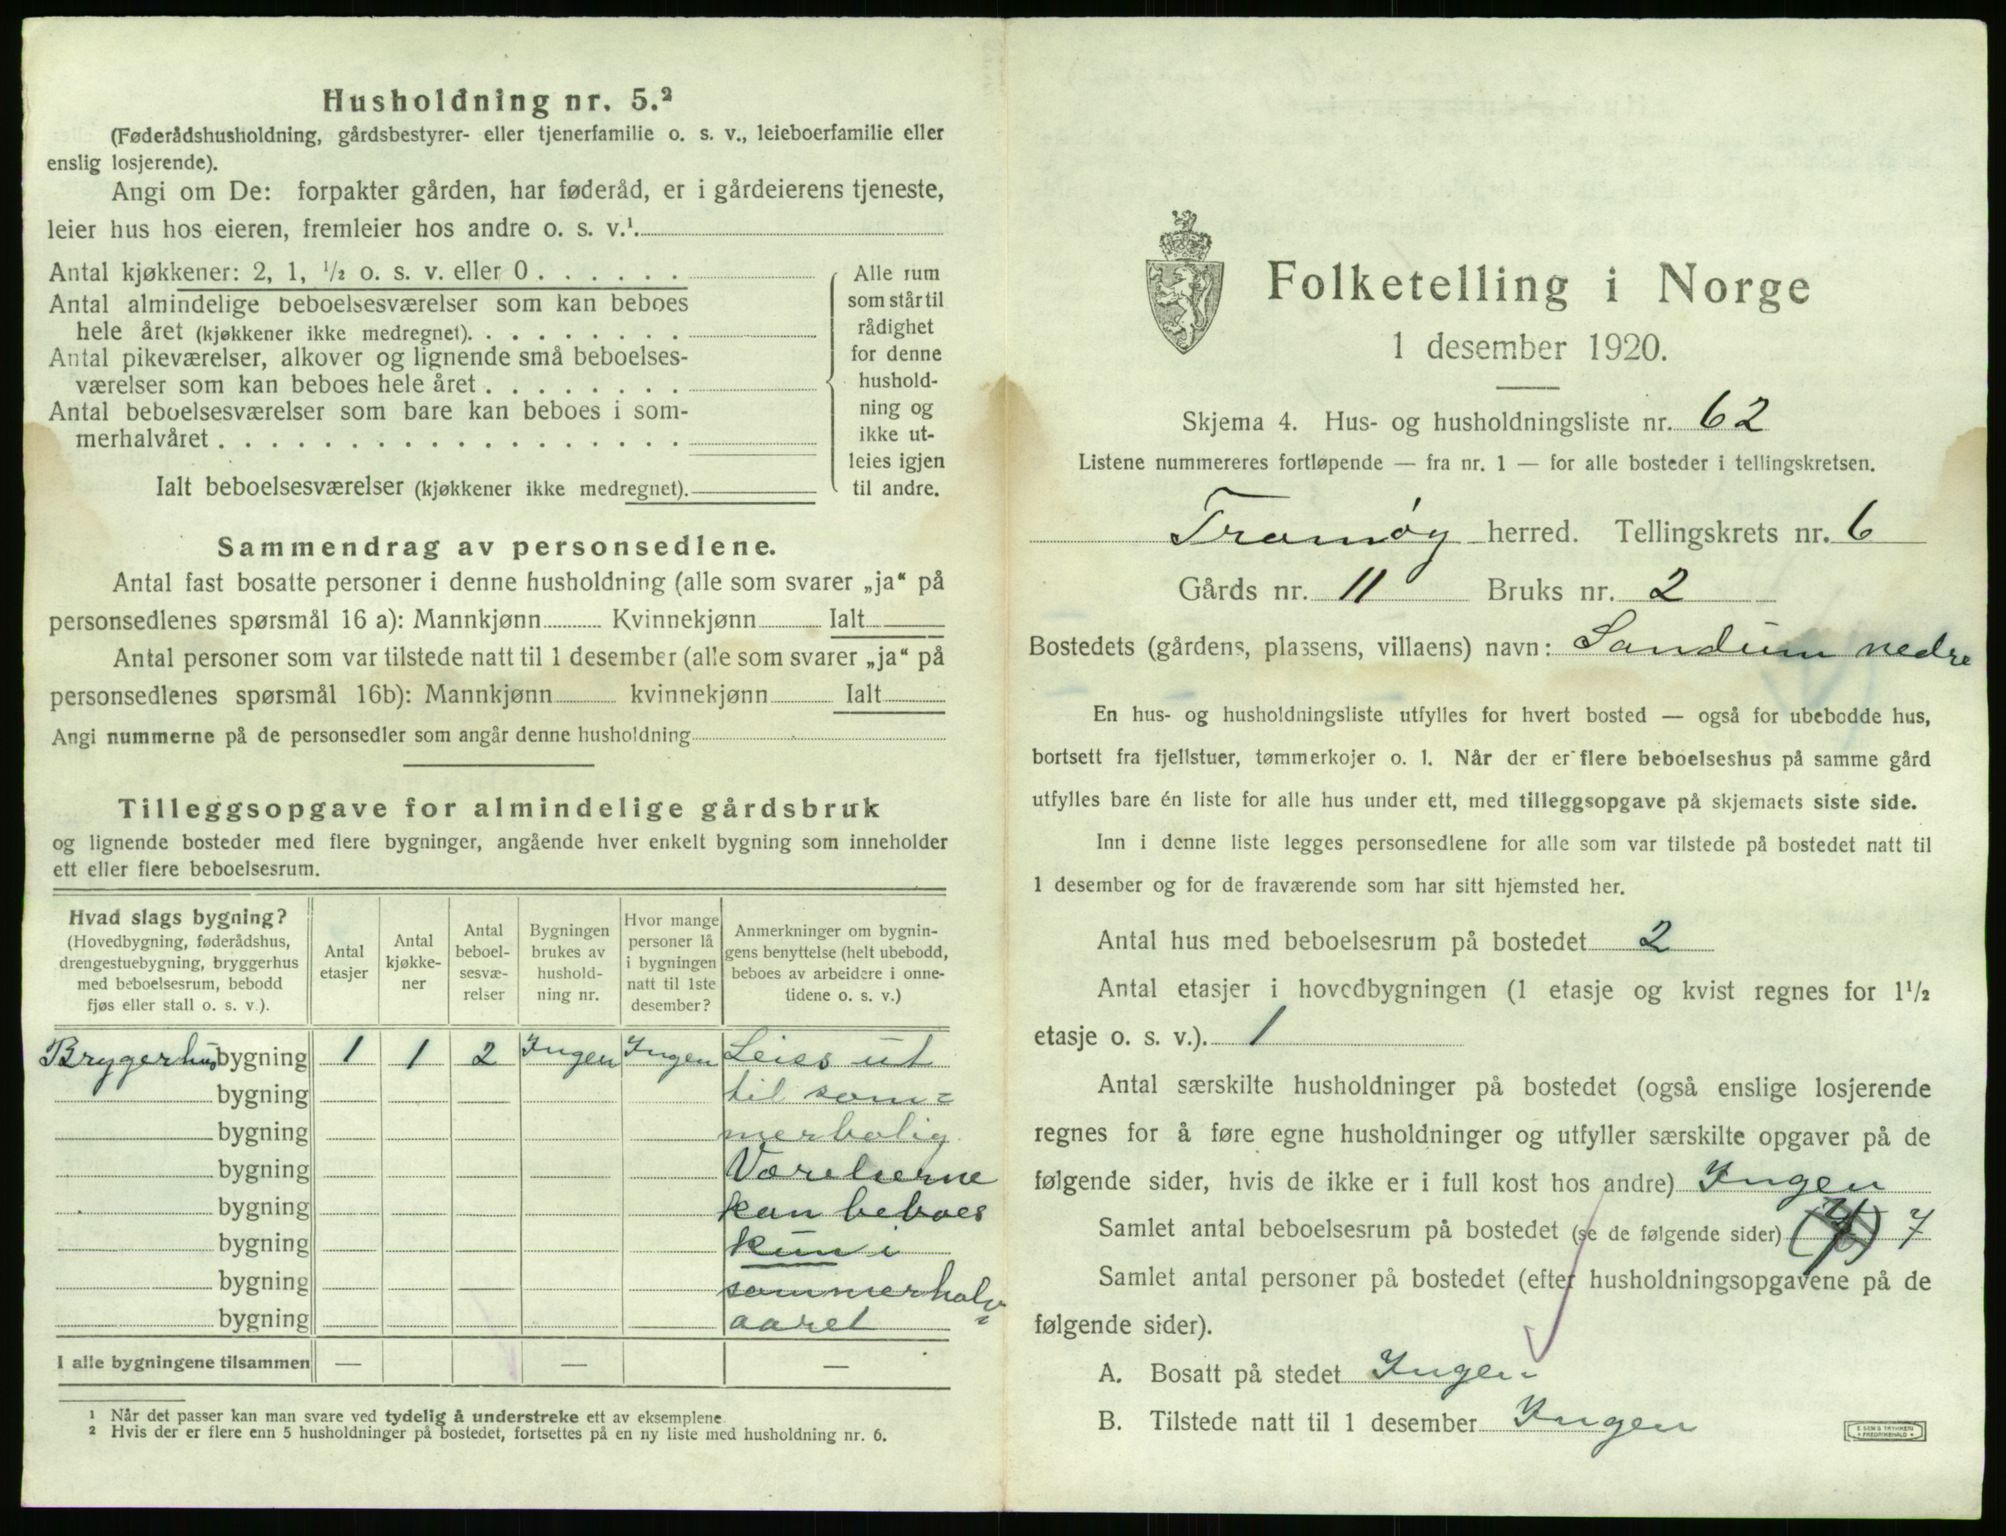 Husholdning nr. 5.²
(Føderådshusholdning, gårdsbestyrer- eller tjenerfamilie o. s. v., leieboerfamilie eller
enslig losjerende).
Angi om De: forpakter gården, har føderåd, er i gårdeierens tjeneste,
leier hus hos eieren, fremleier hos andre o. s. v.¹
Antal kjøkkener: 2, 1, ½ o. s. v. eller 0 . . . . . .
Antal almindelige beboelsesværelser som kan beboes
hele året (kjøkkener ikke medregnet). . . . . . . . .
Antal pikeværelser, alkover og lignende små beboelses-
værelser som kan beboes hele året . . . . . . . .
Antal beboelsesværelser som bare kan beboes i som-
merhalvåret . . . . . . . . . . . . . . . . . .
Ialt beboelsesværelser (kjøkkener ikke medregnet).
Alle rum
som står til
rådighet
for denne
hushold-
ning og
ikke ut-
leies igjen
til andre.
Sammendrag av personsedlene.
Antal fast bosatte personer i denne husholdning (alle som svarer „ja“ på
personsedlenes spørsmål 16 a): Mannkjønn Kvinnekjønn Ialt
Antal personer som var tilstede natt til 1 desember (alle som svarer „ja“ på
personsedlenes spørsmål 16b): Mannkjønn kvinnekjønn Ialt
Angi nummerne på de personsedler som angår denne husholdning
Tilleggsopgave for almindelige gårdsbruk
og lignende bosteder med flere bygninger, angående hver enkelt bygning som inneholder
ett eller flere beboelsesrum.
Hvad slags bygning?
(Hovedbygning, føderådshus,
drengestuebygning, bryggerhus
med beboelsesrum, bebodd
fjøs eller stall o. s. v.).
Antal
etasjer
Antal
kjøkke-
ner
Antal
beboel-
sesvæ-
relser
Bygningen
brukes av
hushold-
ning nr.
Hvor mange
personer lå
i bygningen
natt til 1ste
desember?
Anmerkninger om bygnin-
gens benyttelse (helt ubebodd,
beboes av arbeidere i onne-
tidene o. s. v.)
Brygerhus bygning 1 1 2 Ingen Ingen Leies ut
bygning til som=
bygning merbolig
bygning Værelserne
bygning kan beboes
bygning kun i
bygning sommerhalv=
bygning aaret
I alle bygningene tilsammen — — —
¹ Når det passer kan man svare ved tydelig å understreke ett av eksemplene.
² Hvis der er flere enn 5 husholdninger på bostedet, fortsettes på en ny liste med husholdning nr. 6.
Folketelling i Norge
1 desember 1920.
Skjema 4. Hus- og husholdningsliste nr. 62
Listene nummereres fortløpende — fra nr. 1 — for alle bosteder i tellingskretsen.
Tromøy herred. Tellingskrets nr. 6
Gårds nr. 11 Bruks nr. 2
Bostedets (gårdens, plassens, villaens) navn: Sandum nedre
En hus- og husholdningsliste utfylles for hvert bosted — også for ubebodde hus,
bortsett fra fjellstuer, tømmerkojer o. l. Når der er flere beboelseshus på samme gård
utfylles bare én liste for alle hus under ett, med tilleggsopgave på skjemaets siste side.
Inn i denne liste legges personsedlene for alle som var tilstede på bostedet natt til
1 desember og for de fraværende som har sitt hjemsted her.
Antal hus med beboelsesrum på bostedet 2
Antal etasjer i hovedbygningen (1 etasje og kvist regnes for 1½
etasje o. s. v.). 1
Antal særskilte husholdninger på bostedet (også enslige losjerende
regnes for å føre egne husholdninger og utfyller særskilte opgaver på de
følgende sider, hvis de ikke er i full kost hos andre) Ingen
Samlet antal beboelsesrum på bostedet (se de følgende sider) 7
Samlet antal personer på bostedet (efter husholdningsopgavene på de
følgende sider).
A. Bosatt på stedet Ingen
B. Tilstede natt til 1 desember Ingen